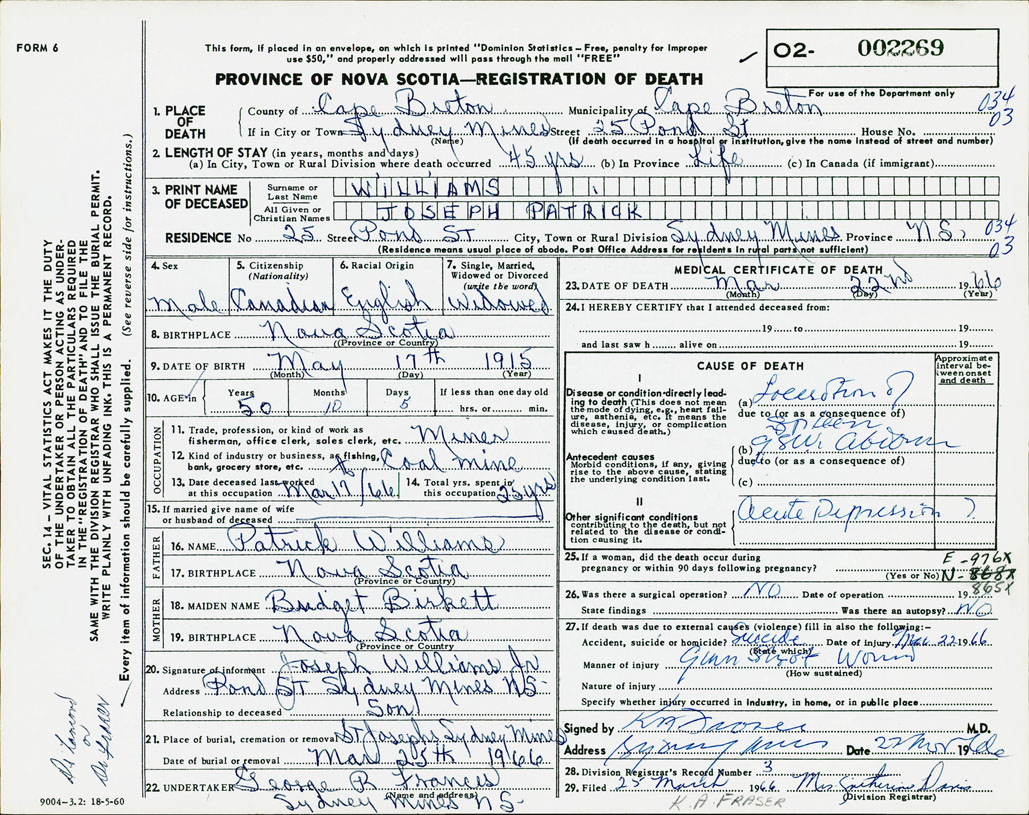 FORM 6
This form, if placed in an envelope, on which is printed "Dominion Statistics – Free, penalty for improper
use $50," and properly addressed will pass through the mail "FREE"
02- 002269
PROVINCE OF NOVA SCOTIA—REGISTRATION OF DEATH
For use of the Department only
034
03
1. PLACE OF DEATH
County of Cape Breton Municipality of Cape Breton
If in City or Town Sydney Mines Street 25 Pond St House No.
(Name) (If death occurred in a hospital or institution, give the name instead of street and number)
2. LENGTH OF STAY (in years, months and days)
(a) In City, Town or Rural Division where death occurred 45 yrs (b) In Province Life (c) In Canada (if immigrant)
3. PRINT NAME OF DECEASED
Surname or Last Name WILLIAMS
All Given or Christian Names JOSEPH PATRICK
RESIDENCE No 25 Street Pond ST City, Town or Rural Division Sydney Mines Province N.S. 034
03
(Residence means usual place of abode. Post Office Address for residents in rural parts not sufficient)
4. Sex Male
5. Citizenship (Nationality) Canadian
6. Racial Origin English
7. Single, Married, Widowed or Divorced (write the word) Widowed
8. BIRTHPLACE Nova Scotia
(Province or Country)
9. DATE OF BIRTH May 17th 1915
(Month) (Day) (Year)
10. AGE in Years 50 Months 10 Days 5 If less than one day old
hrs. or min.
OCCUPATION
11. Trade, profession, or kind of work as
fisherman, office clerk, sales clerk, etc. Miner
12. Kind of industry or business, as fishing,
bank, grocery store, etc. Coal mine
13. Date deceased last worked
at this occupation Mar 17/66
14. Total yrs. spent in
this occupation 25 yrs
15. If married give name of wife
or husband of deceased
FATHER
16. NAME Patrick Williams
17. BIRTHPLACE Nova Scotia
(Province or Country)
MOTHER
18. MAIDEN NAME Bridget Birkett
19. BIRTHPLACE Nova Scotia
(Province or Country)
20. Signature of informant Joseph Williams Jr
Address Pond ST Sydney Mines NS-
Relationship to deceased Son
21. Place of burial, cremation or removal St Josephs Sydney Mines
Date of burial or removal Mar 25th 1966
22. UNDERTAKER George R Francis
(Name and address)
Sydney Mines NS-
MEDICAL CERTIFICATE OF DEATH
23. DATE OF DEATH Mar 22nd 1966
(Month) (Day) (Year)
24. I HEREBY CERTIFY that I attended deceased from:
19 to 19
and last saw h alive on 19
CAUSE OF DEATH
Approximate interval between onset and death
I
Disease or condition directly leading to death (This does not mean the mode of dying, e.g., heart failure, asthenia, etc. It means the disease, injury, or complication which caused death.)
(a) of
due to (or as a consequence of)
Spleen
(b) GSW.
due to (or as a consequence of)
(c)
Antecedent causes
Morbid conditions, if any, giving rise to the above cause, stating the underlying condition last.
II
Other significant conditions contributing to the death, but not related to the disease or condition causing it.
Acute Depression ?
25. If a woman, did the death occur during
pregnancy or within 90 days following pregnancy?
(Yes or No)
E-976X
N-868X
865X
26. Was there a surgical operation? NO Date of operation 19
State findings Was there an autopsy? NO
27. If death was due to external causes (violence) fill in also the following:–
Accident, suicide or homicide? Suicide Date of injury Mar 22 1966
(State which)
Manner of injury Gun Shot Wound
(How sustained)
Nature of injury
Specify whether injury occurred in Industry, in home, or in public place
Signed by M.D.
Address Sydney Mines Date 22 1966
28. Division Registrar's Record Number 3
29. Filed 25 March 1966 Mrs. Catherine Davis
(Division Registrar)
K.A. FRASER
SEC. 14 – VITAL STATISTICS ACT MAKES IT THE DUTY
OF THE UNDERTAKER OR PERSON ACTING AS UNDERTAKER
TO OBTAIN ALL THE PARTICULARS REQUIRED
IN THE "REGISTRATION OF DEATH" AND TO FILE THE
SAME WITH THE DIVISION REGISTRAR WHO SHALL ISSUE THE BURIAL PERMIT.
WRITE PLAINLY WITH UNFADING INK. THIS IS A PERMANENT RECORD.
Every item of information should be carefully supplied. (See reverse side for instructions.)
Dr Lamond
or
Dr Fraser
9004-3.2: 18-5-60